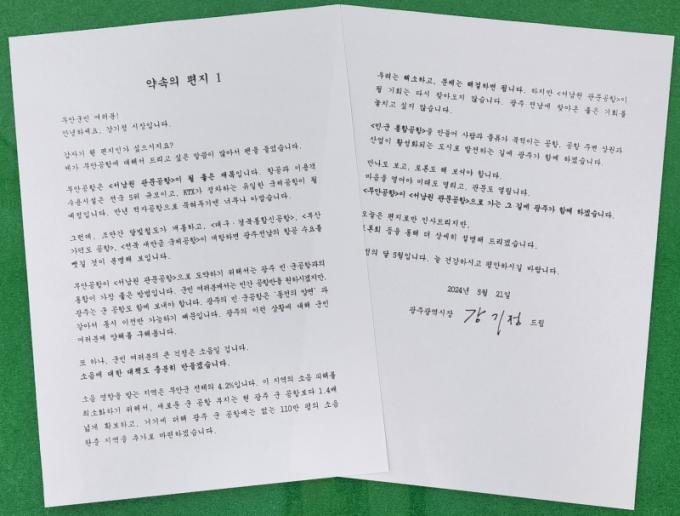 약속의 편지 1
무안군민 여러분!
안녕하세요, 강기정 시장입니다.
갑자기 웬 편지인가 싶으시지요?
제가 무안공항에 대해서 드리고 싶은 말씀이 많아서 펜을 들었습니다.
무안공항은 <서남권 관문공항>이 될 좋은 재목입니다. 활공과 이용객
수용시설은 전국 5위 규모이고, KTX가 정차하는 유일한 국제공항이 될
예정입니다. 만년 적자공항으로 묵혀두기엔 너무나 아깝습니다.
그런데, 조만간 달빛철도가 개통하고, <대구·경북통합신공항>, <부산
가덕도 공항>, <전북 새만금 국제공항>이 개항하면 광주전남의 항공 수요를
뺏길 것이 분명해 보입니다.
무안공항이 <서남권 관문공항>으로 도약하기 위해서는 광주 민·군공항과의
통합이 가장 좋은 방법입니다. 군민 여러분께서는 민간 공항만을 원하시겠지만,
광주는 군 공항도 함께 보내야 합니다. 광주의 민·군공항은 '동전의 양면' 과
같아서 동시 이전만 가능하기 때문입니다. 광주의 이런 상황에 대해 군민
여러분께 양해를 구해봅니다.
또 하나, 군민 여러분의 큰 걱정은 소음일 겁니다.
소음에 대한 대책도 충분히 만들겠습니다.
소음 영향을 받는 지역은 무안군 전체의 4.2%입니다. 이 지역의 소음 피해를
최소화하기 위해서, 새로운 군 공항 부지는 현 광주 군 공항보다 1.4배
넓게 확보하고, 거기에 더해 광주 군 공항에는 없는 110만 평의 소음
완충 지역을 추가로 마련하겠습니다.
우려는 해소하고, 문제는 해결하면 됩니다. 하지만 <서남권 관문공항>이
될 기회는 다시 찾아오지 않습니다. 광주·전남에 찾아온 좋은 기회를
놓치고 싶지 않습니다.
<민·군 통합공항>을 만들어 사람과 물류가 북적이는 공항, 공항 주변 상권과
산업이 활성화되는 도시로 발전하는 길에 광주가 함께 하겠습니다.
만나도 보고, 토론도 해 보아야 합니다.
마음을 열어야 미래도 열리고, 관문도 열립니다.
<무안공항>이 <서남권 관문공항>으로 가는 그 길에 광주가 함께 하겠습니다.
오늘은 편지로만 인사드리지만,
토론회 등을 통해 더 상세히 설명해 드리겠습니다.
정의 달 5월입니다. 늘 건강하시고 평안하시길 바랍니다.
2024년 5월 21일
광주광역시장 강기정 드림